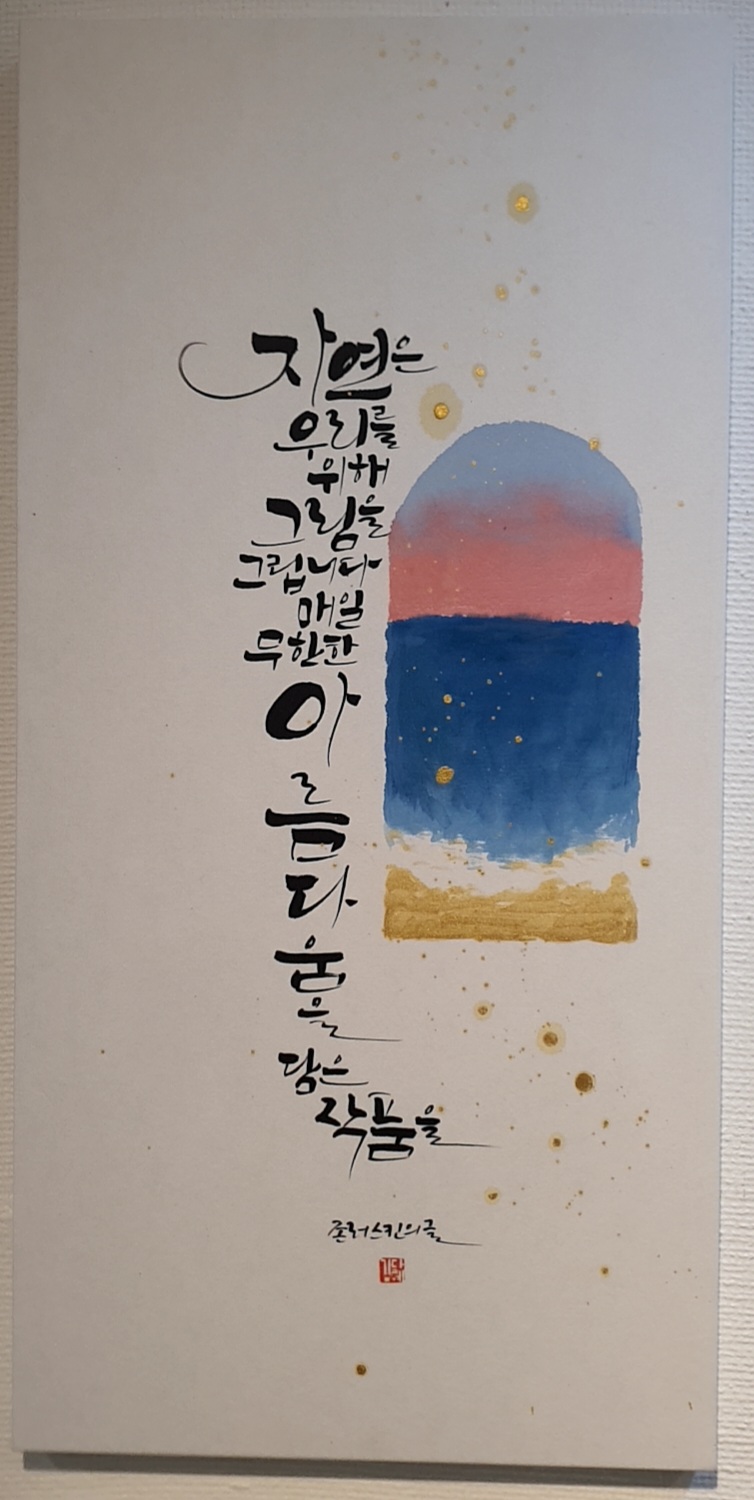 자연은
우리를
위해
그림을
그립니다
매일
무한한
아
름
다
움
을
담은
작품을
존러스킨의글